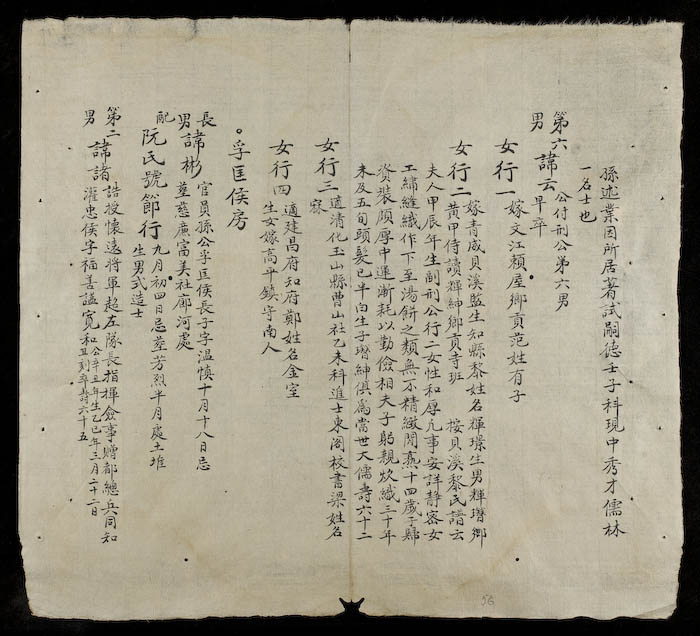 孫述業因所居著試嗣德壬子科現中秀才儒林
一名士也
第六男 諱云 公付刑公第六男
早卒
女行一 嫁文江頼屋鄉貢范姓有子
女行二 嫁青成貝溪監生知縣黎姓名輝璟生男輝瑨鄉
黃甲侍讀輝紳鄉貢寺班 按貝溪黎氏譜云
夫人甲辰年生副刑公行二女性和厚凡事安詳靜容女
工繡縫織作下至湯餅之類無不精緻閒熟十四歲于歸
資裝頗厚中運漸耗以勤儉相夫子躬親炊織三十年
未及五旬頭髮已半白生子瑨紳俱爲當世大儒壽六十二
女行三 適清化玉山縣曹山社乙未科進士東閣校書梁姓名
寀
女行四 適建昌府知府鄭姓名金室
生女嫁高平鎮守南人
孚匡侯房
長男 諱彬 官員孫公孚匡侯長子字温慎十月十八日忌
墓慈廉富美社廊河處
配 阮氏號節行 九月初四日忌墓芳烈半月處土堆
生男式造士
第二男 諱諸 誥授懷遠將軍超左隊長指揮僉事贈都總兵同知
灌忠侯字福善謚寬和公辛丑年生乙巳年三月二十二日
丑刻卒壽六十五
56